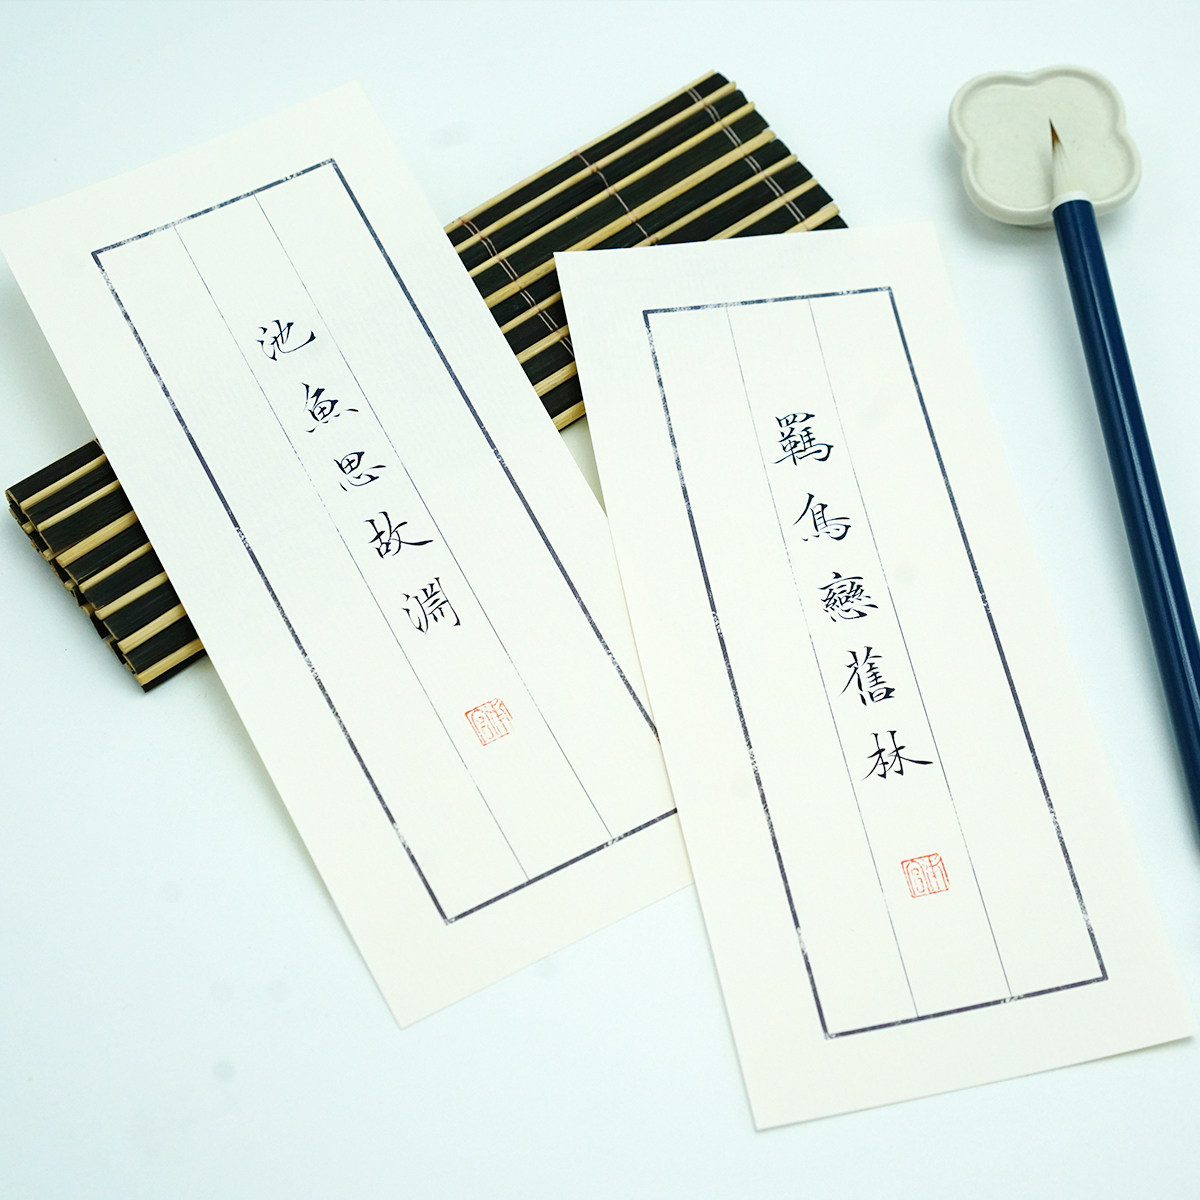 池魚思故淵
羈鳥戀舊林